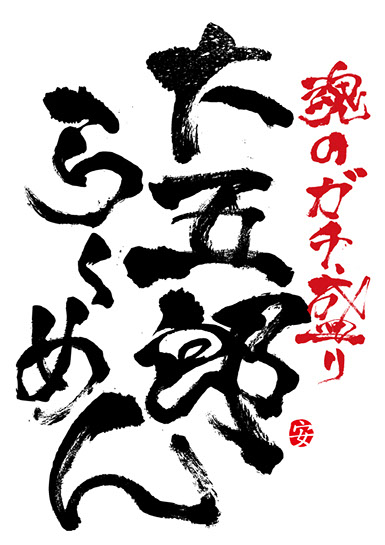 魂のガチ盛り
大五郎
らぁめん
安